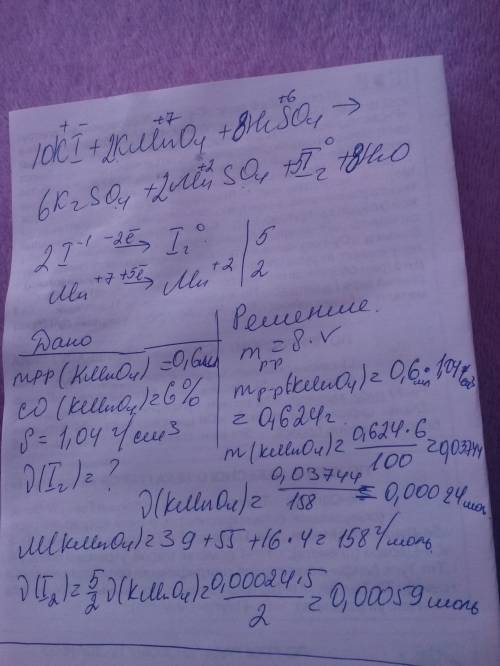 10KI + 2KMnO₄ + 8H₂SO₄ →
6K₂SO₄ + 2MnSO₄ + 5I₂⁰ + 8H₂O
2I⁻¹ –2e̅→ I₂⁰ | 5
Mn⁺⁷ +5e̅→ Mn⁺² | 2
Дано
mрр (KMnO₄) = 0,6мл
ω (KMnO₄) = 6%
ρ = 1,04 г/см³
ν(I₂) = ?
Решение.
m р-р = ρ · V
m р-р(KMnO₄) = 0,6 мл · 1,04 г/см³
= 0,624г
m(KMnO₄) = 0,624·6 / 100 = 0,03744
ν(KMnO₄) = 0,03744 / 158 = 0,00024 моль
M(KMnO₄) = 39 + 55 + 16·4 = 158 г/моль
ν(I₂) = 5/2 ν(KMnO₄) = 0,00024·5 / 2 = 0,00059 моль